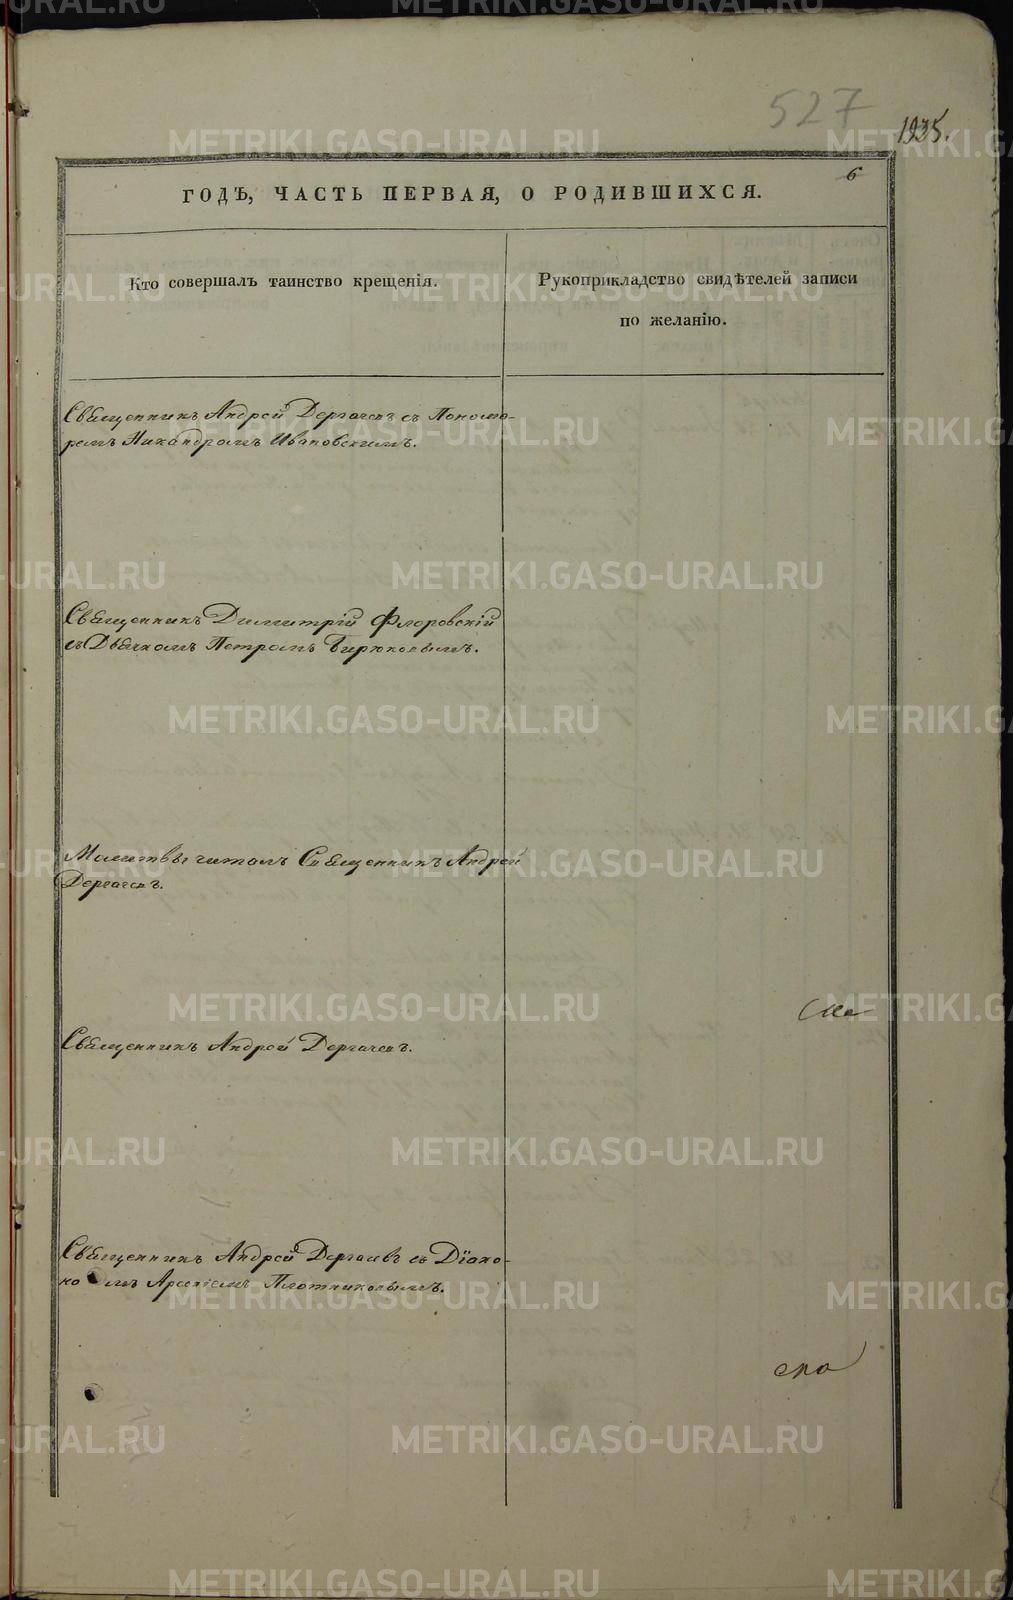 527
1935.
6
ГОДЪ, ЧАСТЬ ПЕРВАЯ, О РОДИВШИХСЯ.
Кто совершалъ таинство крещенія.
Рукоприкладство свидѣтелей записи
по желанію.
Священникъ Андрей Дергачевъ съ Понома-
ремъ Никандромъ Ивановскимъ.
Священникъ Димитрій Флоровскій
съ Дьячкомъ Петромъ Бирюковымъ.
Молитвы читалъ Священникъ Андрей
Дергачевъ.
Священникъ Андрей Дергачевъ.
Священникъ Андрей Дергачевъ съ Діако-
номъ Арсеніемъ Плотниковымъ.
METRIKI.GASO-URAL.RU